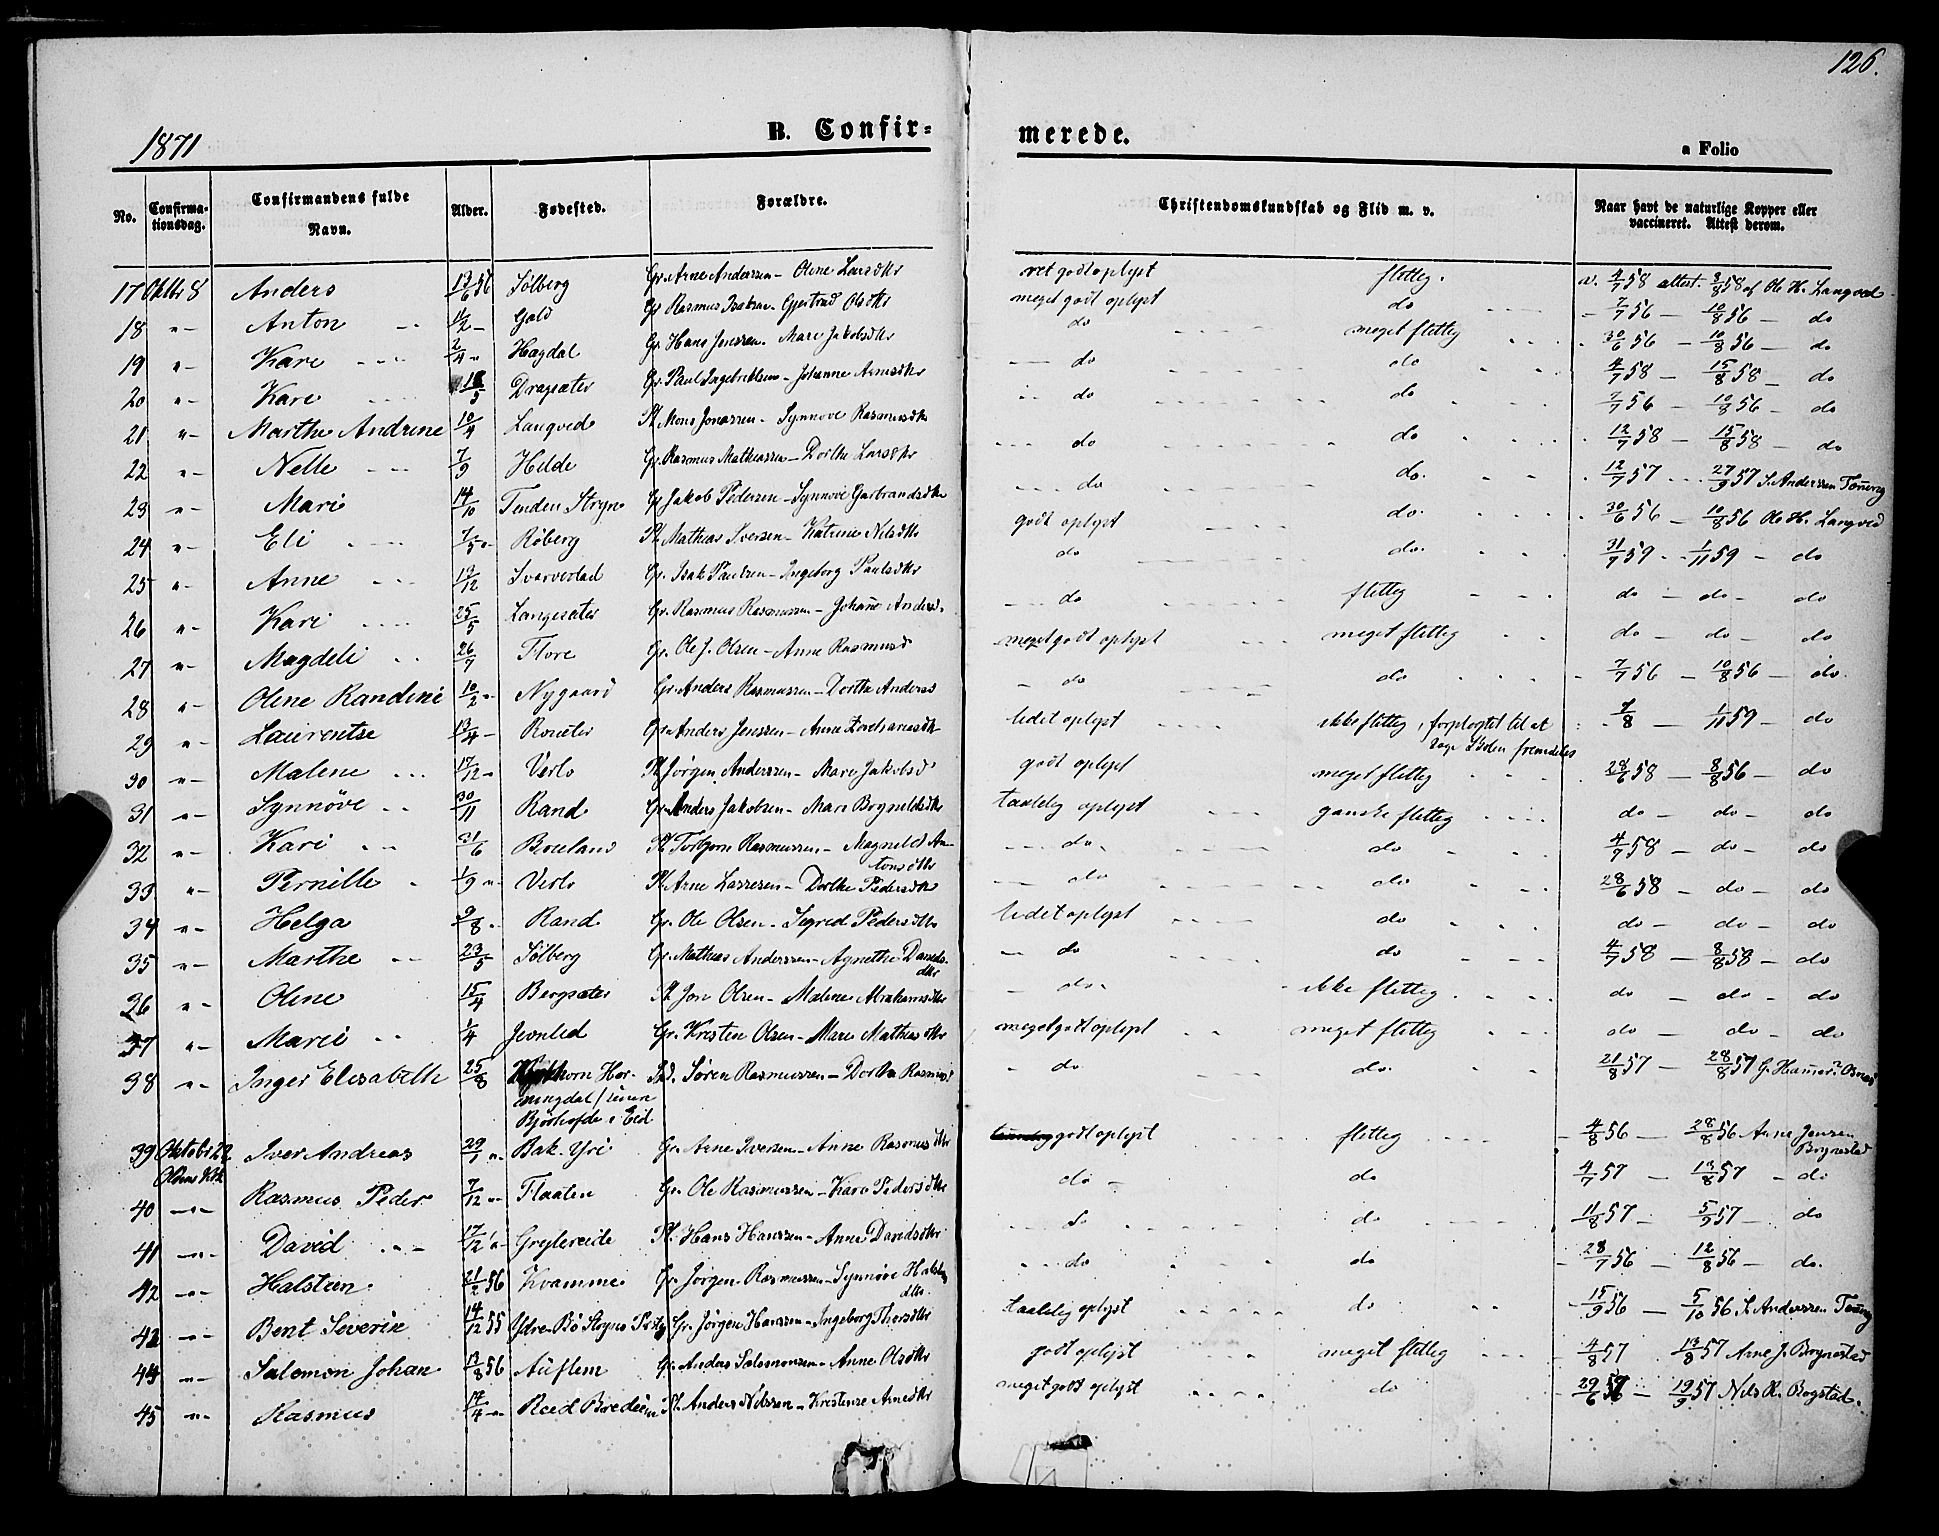 126.
1871
B. Confir- merede.
a Folio
No. Confirma-tionsdag. Confirmandens fulde Navn. Alder. Fødested. Forældre. Christendomskundskab og Flid m. v. Naar havt de naturlige Kopper eller vaccineret. Attest derom.
17 Oktbr 8 Anders 13/6 56 Sølberg Gr. Arne Anderssen - Oline Larsdtr ret godt oplyst flittig. v. 4/7 58 attest. 8/8 58 af Ole H. Langved
18 "- Anton 11/2 - Gald Gr Rasmus Isaksen - Gjertrud Olsdtr meget godt oplyst do - 7/7 56 - 10/8 56 - do
19 "- Kari 2/4 " Hagdal Gr. Hans Jenssen. Mari Jakobsdtr do meget flittig 30/6 56 - 10/8 56 - do
20 "- Kari 18/5 Dragsæter Gr. Paul Ingebriktsen - Johanne Arnesdtr do do 4/7 58 - 15/8 58 - do
21 "- Marthe Andrine 10/4 Langved Pl. Mons Jonassen - Synnøve Rasmusdtr do do 7/7 56 - 10/8 56 - do
22 "- Nelle 7/9 Hilde Gr. Rasmus Mathiassen - Dorthe Larsdtr do do 12/7 58 - 15/8 58 - do
23 "- Mari 14/10 Tenden Stryn Gr Jakob Pedersen - Synnøve Garbrandsdtr do do. 12/7 57 27/9 57 S. Anderssen Tonning
24 "- Eli 7/5 " Røberg Pl. Mathias Iversen - Katrine Nilsdtr godt oplyst do. 30/6 56 - 10/8 56 Ole H. Langved
25 "- Anne 19/12 Svarvestad Gr. Isak Paulsen - Ingeborg Paulsdtr do do. 31/7 59 - 1/11 59 - do
26 "- Kari 25/5 Langesæter Gr. Rasmus Rasmussen - Johanne Andersd. do flittig do - do - do
27 "- Magdeli 26/7 Flore Gr. Ole J. Olsen - Anne Rasmusd meget godt oplyst meget flittig do - do - do
28 "- Oline Randine 10/2 " Nygaard Gr. Anders Rasmussen - Dorthe Andersd do do 7/7 56 - 10/8 56 - do.
29 "- Laurentse 13/4 - Gr. Anders Jenssen - Anne Zachariasdtr lidet oplyst ikke flittig, forpligtet til at søge Skolen fremdeles 7/8 - 1/11 59 - do
30 "- Malene 17/12 " Verlo Pl Jørgen Anderssen - Mari Jakobsd godt oplyst meget flittig 28/6 58 - 8/8 56 - do
31 "- Synnøve 30/11 Rand Gr. Anders Jakobsen - Mari Bogneldsdtr taalelig oplyst ganske flittig do - do - do
32 "- Kari 21/6 Pl Torbjørn Rasmussen - Magnild Antonsdtr do. do 4/7 58 - do - do
33 "- Pernille 1/9 " Verlo Pl Arne Lassesen - Dorthe Pedersdtr do do 28/6 58 - do - do
34 "- Helga 9/8 " Rand Gr. Ole Olsen - Sigrid Pedersdtr lidet oplyst do do - do - do
35 "- Marthe 23/5 Sølberg Gr. Mathias Anderssen - Agnethe Danielsdtr do do 4/7 58 - 8/8 58 - do
36 "- Oline 15/4 Bergsæter Pl Jon Olsen - Malene Abrahamsdtr do. ikke flittig do - do - do
37 "- Marie 1/4 Gr. Kristen Olsen - Mari Mathiasdtr meget godt oplyst meget flittig do - do - do
38 "- Inger Elisabeth 25/8 Søren Rasmussen - Dorthe Rasmusd do do. 21/8 57 - 28/8 57
Bjørhofde i Eid
39 Oktobr 22 Iver Andreas 29/1 " Bak-Yri Gr. Arne Iversen - Anne Rasmusdtr godt oplyst flittig 4/8 56 - 28/8 56 Arne Jensen Brynestad
Oldens Kirke
40 -"- Rasmus Peder 7/12 "- Flaaten Gr. Ole Rasmussen - Kari Pedersdtr do do 4/7 57 - 13/8 57 - do
41 -"- David 17/12 "- Grytereide Pl. Hans Hanssen - Anne Davidsdtr do do 11/8 57 - 5/9 57 - do
42 -"- Halsten 21/2 56 Kvamme Gr. Jørgen Rasmussen - Synnøve Halstensdtr. do do 28/7 56 - 12/8 56 - do.
43 -"- Bent Severin 14/12 55 Ydre-Bø Stryns Pstgj Gr. Jørgen Hanssen - Ingeborg Thorsdtr taalelig oplyst do 15/9 56 - 5/10 56 S. Anderssen Tonning
44 -"- Salomon Johan 13/8 56 Auflem Gr. Anders Salomonsen - Anne Olsdtr godt oplyst meget flittig 4/8 57 13/8 57 Arne J. Brynestad
45 "- Rasmus 14/4 "- Reed Bredeim Pl. Anders Nilssen - Kristense Arnesdtr meget godt oplyst do 29/6 57 - 19/9 57 Nils R. Bogstad.